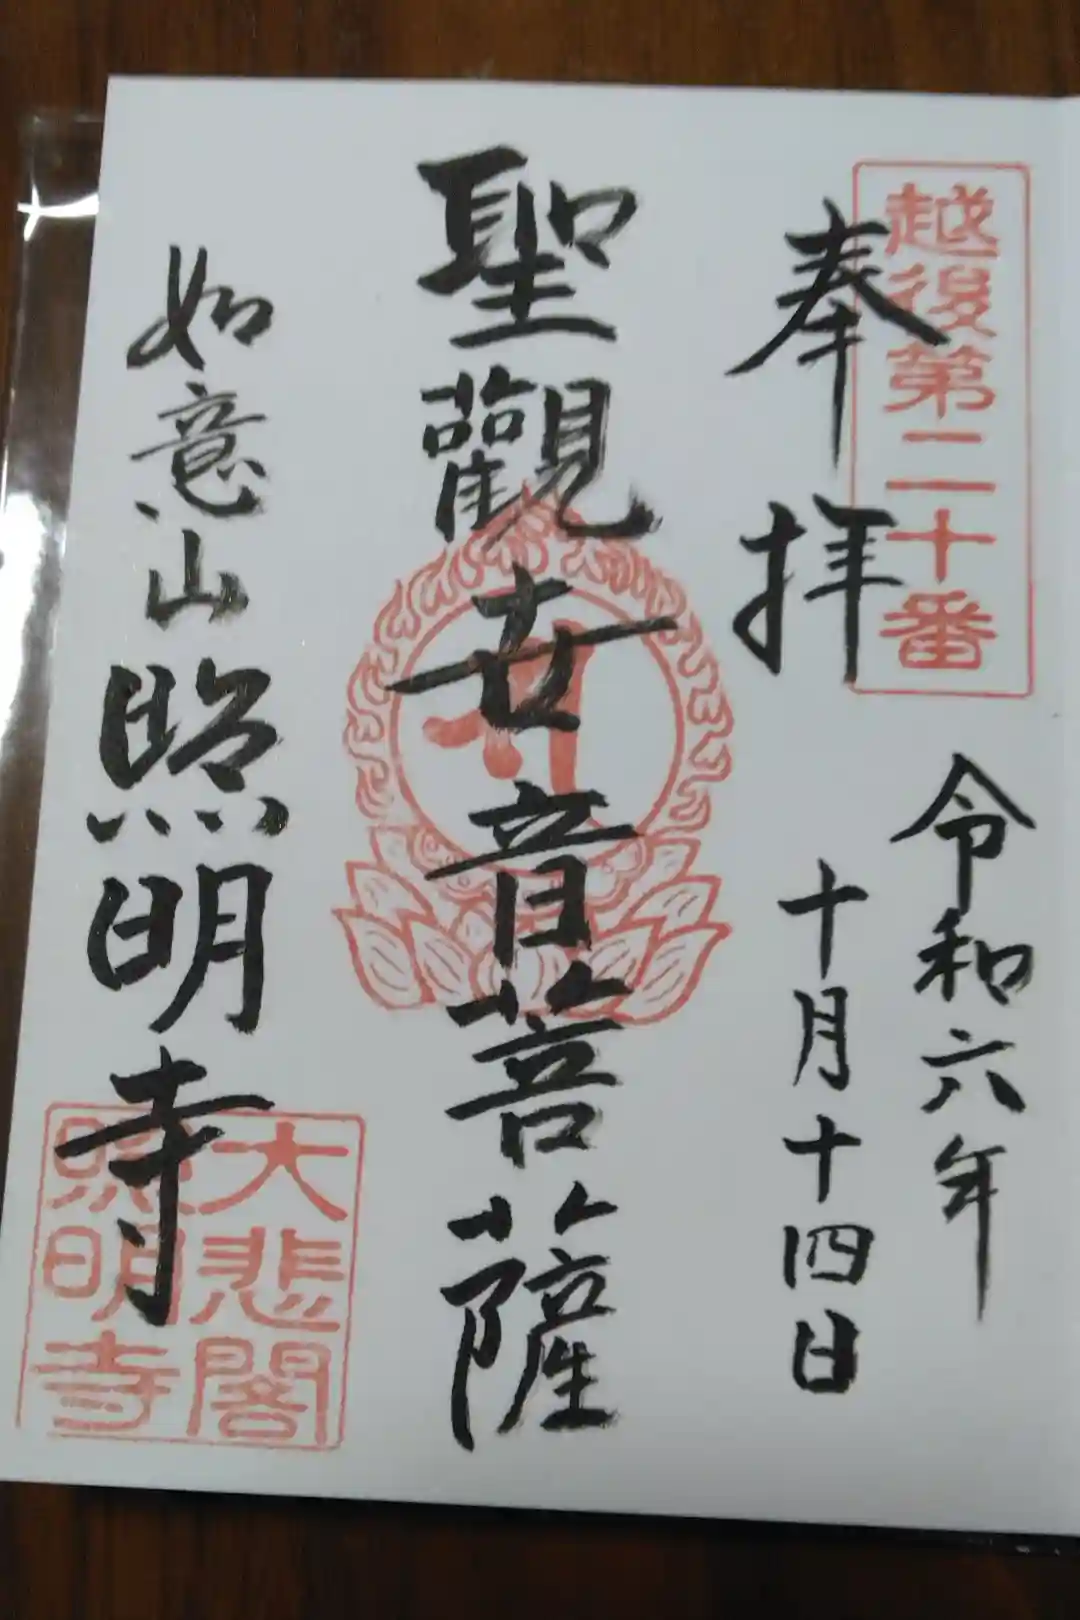 越後第二十番
奉拝
令和六年
十月十四日
聖觀世音菩薩
如意山照明寺
大悲閣
照明寺